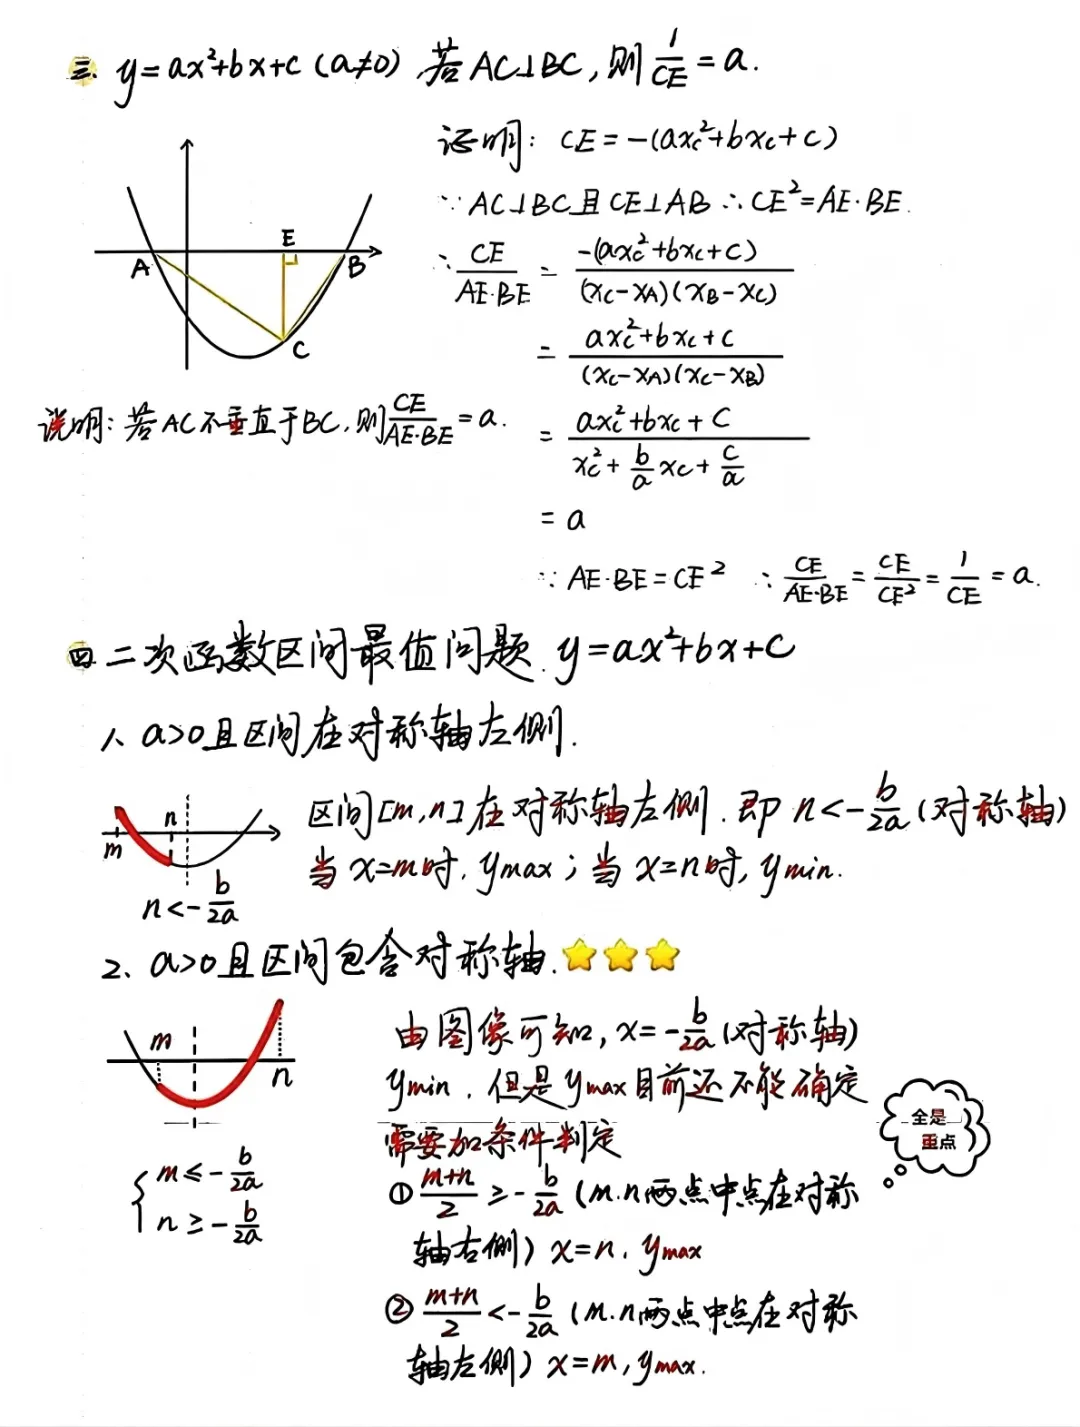 三、y=ax²+bx+c (a≠0) 若AC⊥BC, 则 1/CE = a.
证明: CE=-(axc²+bxc+c)
∵AC⊥BC且CE⊥AB ∴CE²=AE·BE.
∴ CE/(AE·BE) = -(axc²+bxc+c)/((xc-xA)(xB-xc))
= (axc²+bxc+c)/((xc-xA)(xc-xB))
= (axc²+bxc+c)/(xc²+(b/a)xc+c/a)
= a
∵ AE·BE=CE² ∴ CE/(AE·BE) = CE/CE² = 1/CE = a.
E
A
B
C
说明: 若AC不垂直于BC, 则 CE/(AE·BE) = a.
四、二次函数区间最值问题. y=ax²+bx+c
1、a>0且区间在对称轴左侧.
m
n
n<-b/2a
区间[m,n]在对称轴左侧. 即 n<-b/2a (对称轴)
当 x=m时, ymax; 当 x=n时, ymin.
2、a>0且区间包含对称轴.
m
n
{ m≤-b/2a
n≥-b/2a
由图像可知, x=-b/2a (对称轴)
ymin. 但是ymax目前还不能确定
需要加条件判定
全是
重点
① (m+n)/2 ≥ -b/2a (m.n两点中点在对称
轴右侧) x=n. ymax
② (m+n)/2 < -b/2a (m.n两点中点在对称
轴左侧) x=m, ymax.